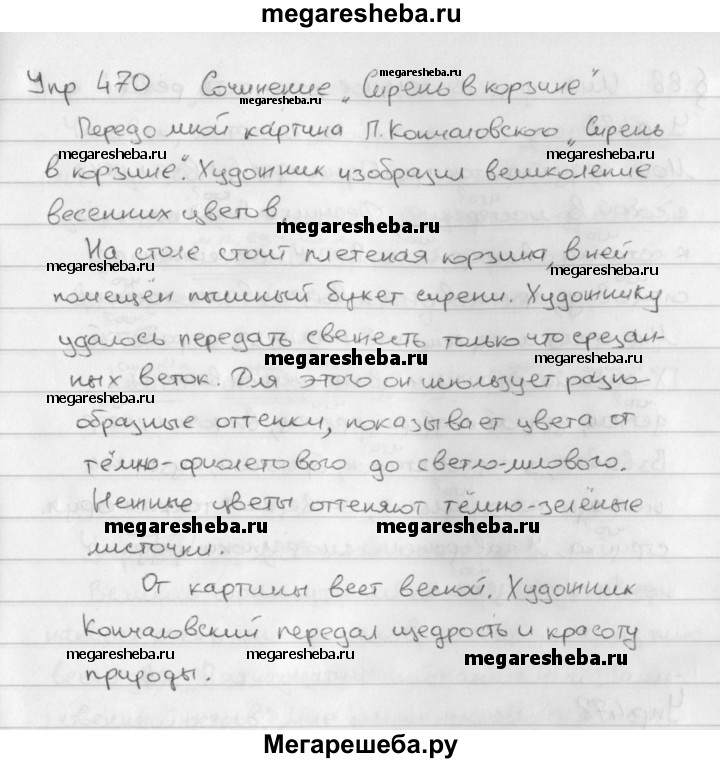 megaresheba.ru
Упр 470 Сочинение „Сирень в корзине"
megaresheba.ru
megaresheba.ru
Передо мной картина П. Кончаловского „Сирень
megaresheba.ru megaresheba.ru
в корзине". Художник изобразил великоление
весенних цветов.
megaresheba.ru
На столе стоит плетеная корзина, в ней
megaresheba.ru megaresheba.ru
помещён пышный букет сирени. Художнику
удалось передать свежесть только что срезан-
megaresheba.ru megaresheba.ru
ных веток. Для этого он использует разно
megaresheba.ru
образные оттенки, показывает цвета от
тёмно-фиолетового до светло-лилового.
Нежные цветы оттеняют тёмно-зелёные
megaresheba.ru megaresheba.ru
листочки.
От картины веет весной. Художник
Кончаловский передал щедрость и красоту
megaresheba.ru megaresheba.ru megaresheba.ru
природы.
Мегарешеба.ру